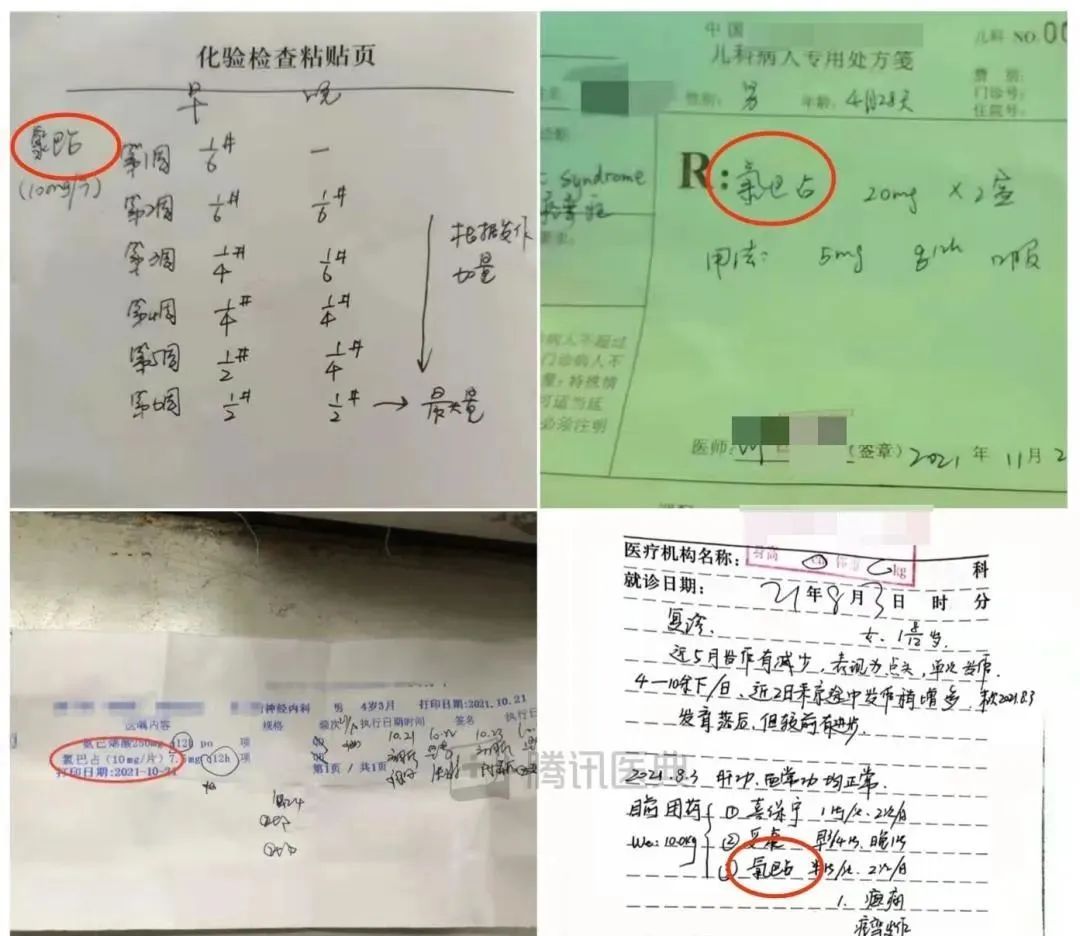 化验检查粘贴页
早 晚
氯巴占
(10mg/片)
第1周 1/6# —
第2周 1/6# 1/6#
第3周 1/4# 1/6#
第4周 1/4# 1/4#
第5周 1/2# 1/4#
第6周 1/2# 1/2# → 最大量
根据发作
加量
中国
儿科 NO.00
儿科病人专用处方笺
费别:
门诊号:
住院号:
性别: 男 年龄: 4月28天
syndrome
R: 氯巴占 20mg × 2盒
用法: 5mg q12h 口服
病人不超过
门诊病人不
量;特殊情
可适当延
必须注明
医师: (签章) 2021年 11月2
神经内科 男 4岁3月 打印日期:2021.10.21
医嘱内容 规格 执行日期时间 签名 执行
氨己烯酸250mg q12h po 项 10.21 10.22 10.23
氯巴占(10mg/片) 7.5mg q12h 项
打印日期:2021-10-21 第1页 / 共1页
腾讯医典
医疗机构名称: kg 科
就诊日期: 21年8月3日 时 分
复诊. 女. 1 8/12岁.
近5月发作有减少,表现为点头,单次发作
4—10余下/日、近2日来京途中发作稍增多,末次2021.8.3
发育落后,但较前有进步.
2021.8.3 肝功,血常功均正常.
目前用药 ① 喜保宁 1片/次.2次/日
Wt: 10.0kg ② 早3/4片.晚1片
③ 氯巴占 半片/次.2次/日
1. 癫痫